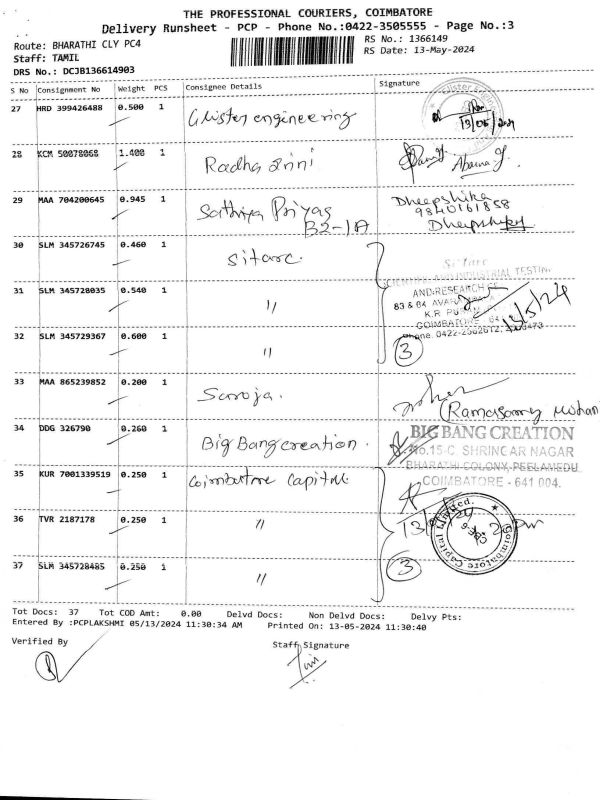 THE PROFESSIONAL COURIERS, COIMBATORE
Delivery Runsheet - PCP - Phone No.:0422-3505555 - Page No.:3
Route: BHARATHI CLY PC4
RS No.: 1366149
Staff: TAMIL
RS Date: 13-May-2024
DRS No.: DCJB136614903
S No Consignment No Weight PCS Consignee Details Signature
27 HRD 399426488 0.500 1 Glister engineering
13/05/2024
28 KCM 50078068 1.400 1 Radha
Aparna
29 MAA 704200645 0.945 1 Sathiya Priyas
B2-1A
Dheepshika
9840161858
Dheepshika
30 SLM 345726745 0.460 1 sitarc.
Sitarc
SCIENTIFIC AND INDUSTRIAL TESTING
31 SLM 345728035 0.540 1 "
AND RESEARCH CE
83 & 84
K.R
COIMBATORE
13/5/24
32 SLM 345729367 0.600 1 "
Phone. 0422-2562612,
3
33 MAA 865239852 0.200 1 Saroja.
(Ramasamy Mohan
34 DDG 326790 0.260 1 Big Bang creation.
BIG BANG CREATION
No.15-C, SHRINGAR NAGAR
BHARATHI COLONY, PEELAMEDU
COIMBATORE - 641 004.
35 KUR 7001339519 0.250 1 Coimbatore Capital
36 TVR 2187178 0.250 1 "
Coimbatore Capital Limited.
37 SLM 345728485 0.250 1 "
3
Tot Docs: 37 Tot COD Amt: 0.00 Delvd Docs: Non Delvd Docs: Delvy Pts:
Entered By :PCPLAKSHMI 05/13/2024 11:30:34 AM Printed On: 13-05-2024 11:30:40
Verified By
Staff Signature